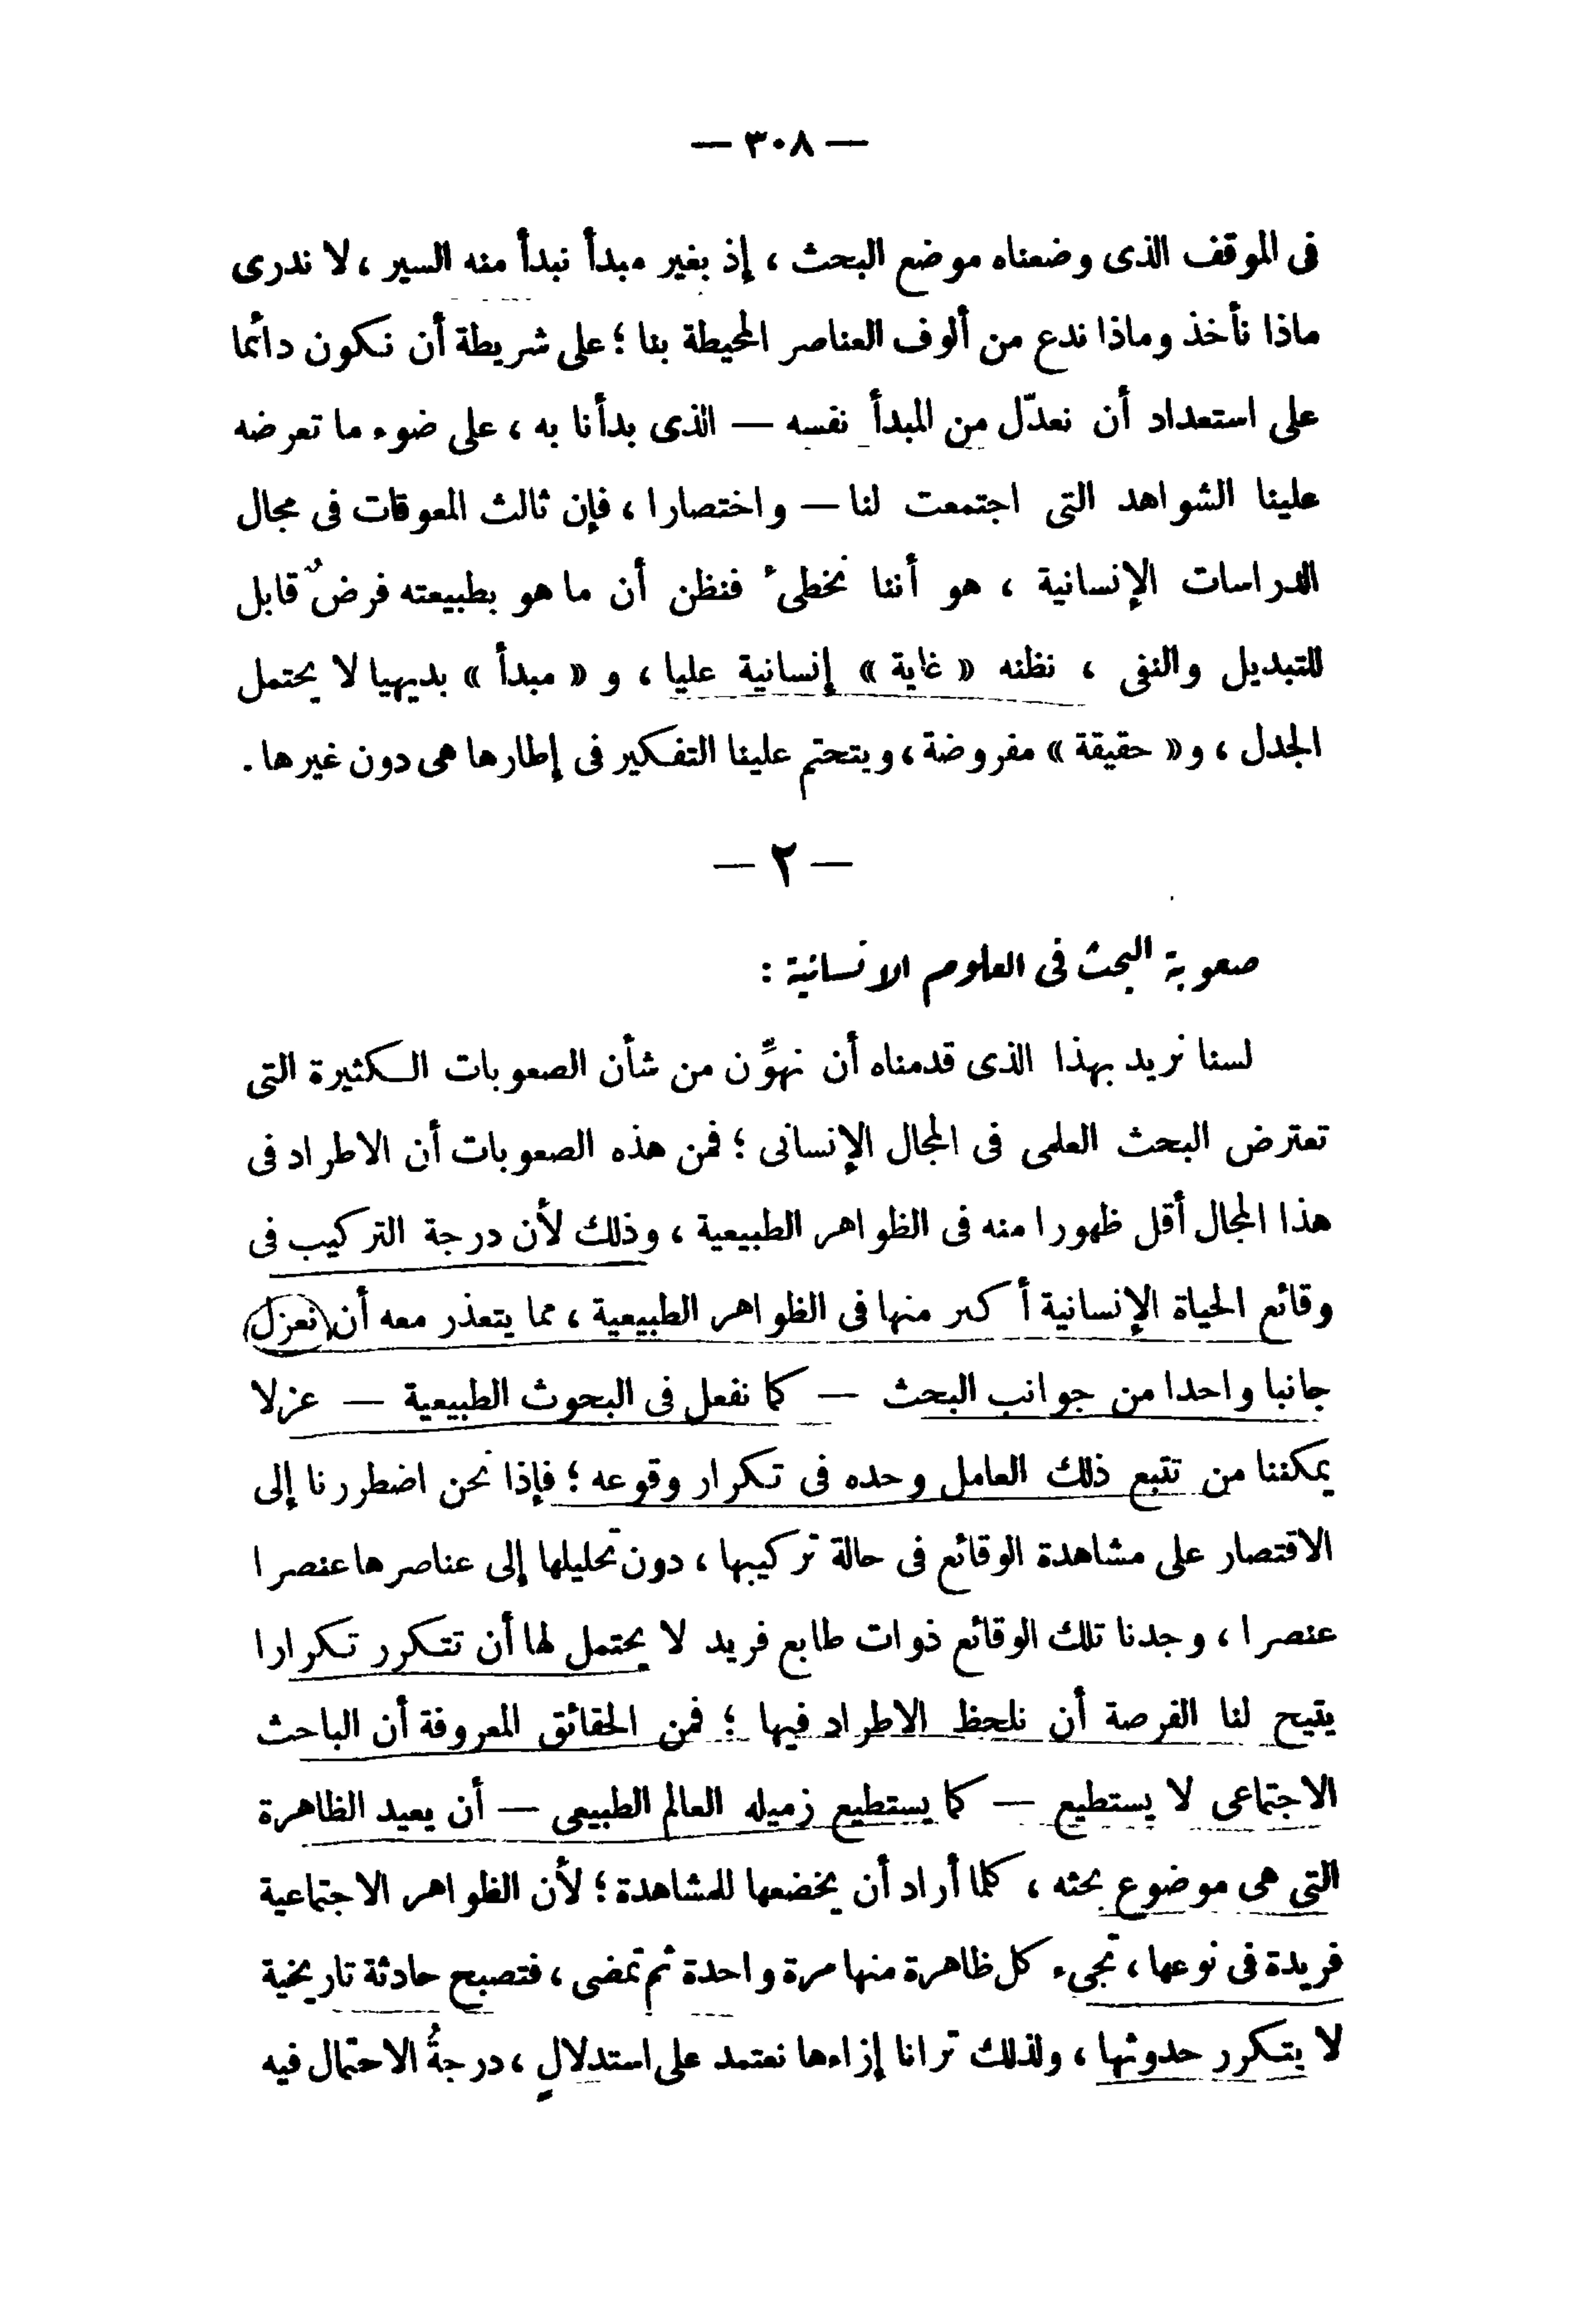 — ٣٠٨ —
فى الموقف الذى وضعناه موضع البحث ، إذ بغير مبدأ نبدأ منه السير ، لا ندرى
ماذا نأخذ وماذا ندع من ألوف العناصر المحيطة بنا ؛ على شريطة أن نكون دائما
على استعداد أن نعدّل من المبدأ نفسه — الذى بدأنا به ، على ضوء ما تعرضه
علينا الشواهد التى اجتمعت لنا — واختصارا ، فإن ثالث المعوقات فى مجال
الدراسات الإنسانية ، هو أننا نخطئ فنظن أن ما هو بطبيعته فرضٌ قابل
للتبديل والنفى ، نظنه « غاية » إنسانية عليا ، و « مبدأ » بديهيا لا يحتمل
الجدل ، و « حقيقة » مفروضة ، ويتحتم علينا التفكير فى إطارها هى دون غيرها .
— ٢ —
صعوبة البحث فى العلوم الانسانية :
لسنا نريد بهذا الذى قدمناه أن نهوِّن من شأن الصعوبات الكثيرة التى
تعترض البحث العلمى فى المجال الإنسانى ؛ فمن هذه الصعوبات أن الاطراد فى
هذا المجال أقل ظهورا منه فى الظواهر الطبيعية ، وذلك لأن درجة التركيب فى
وقائع الحياة الإنسانية أكبر منها فى الظواهر الطبيعية ، مما يتعذر معه أن نعزل
جانبا واحدا من جوانب البحث — كما نفعل فى البحوث الطبيعية — عزلا
يمكننا من تتبع ذلك العامل وحده فى تكرار وقوعه ؛ فإذا نحن اضطررنا إلى
الاقتصار على مشاهدة الوقائع فى حالة تركيبها ، دون تحليلها إلى عناصرها عنصرا
عنصرا ، وجدنا تلك الوقائع ذوات طابع فريد لا يحتمل لها أن تتكرر تكرارا
يتيح لنا الفرصة أن نلحظ الاطراد فيها ؛ فمن الحقائق المعروفة أن الباحث
الاجتماعى لا يستطيع — كما يستطيع زميله العالم الطبيعى — أن يعيد الظاهرة
التى هى موضوع بحثه ، كلما أراد أن يخضعها للمشاهدة ؛ لأن الظواهر الاجتماعية
فريدة فى نوعها ، تجىء كل ظاهرة منها مرة واحدة ثم تمضى ، فتصبح حادثة تاريخية
لا يتكرر حدوثها ، ولذلك ترانا إزاءها نعتمد على استدلالٍ ، درجةُ الاحتمال فيه